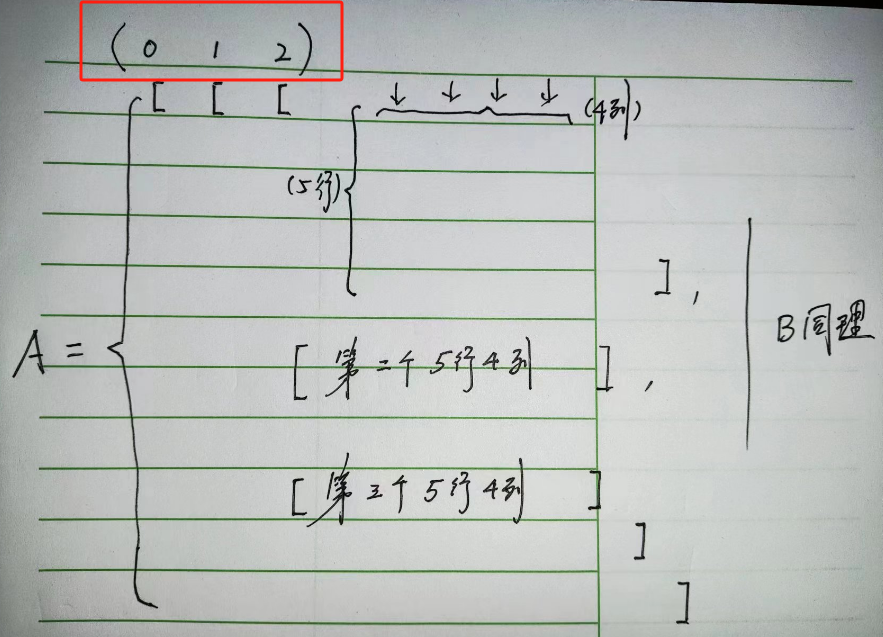 (0 1 2)
[ [ [ ↓ ↓ ↓ ↓ (4列)
(5行)
] ,
A = [ 第二个5行4列 ] ,
B同理
[ 第三个5行4列 ]
]
]